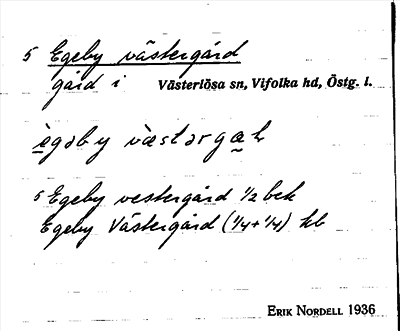 5 Egeby västergård
gård i Västerlösa sn, Vifolka hd, Östg. l.
ègəby vàstərgah
5 Egeby vestergård 1/2 bek
Egeby Västergård (1/4+1/4) kb
ERIK NORDELL 1936